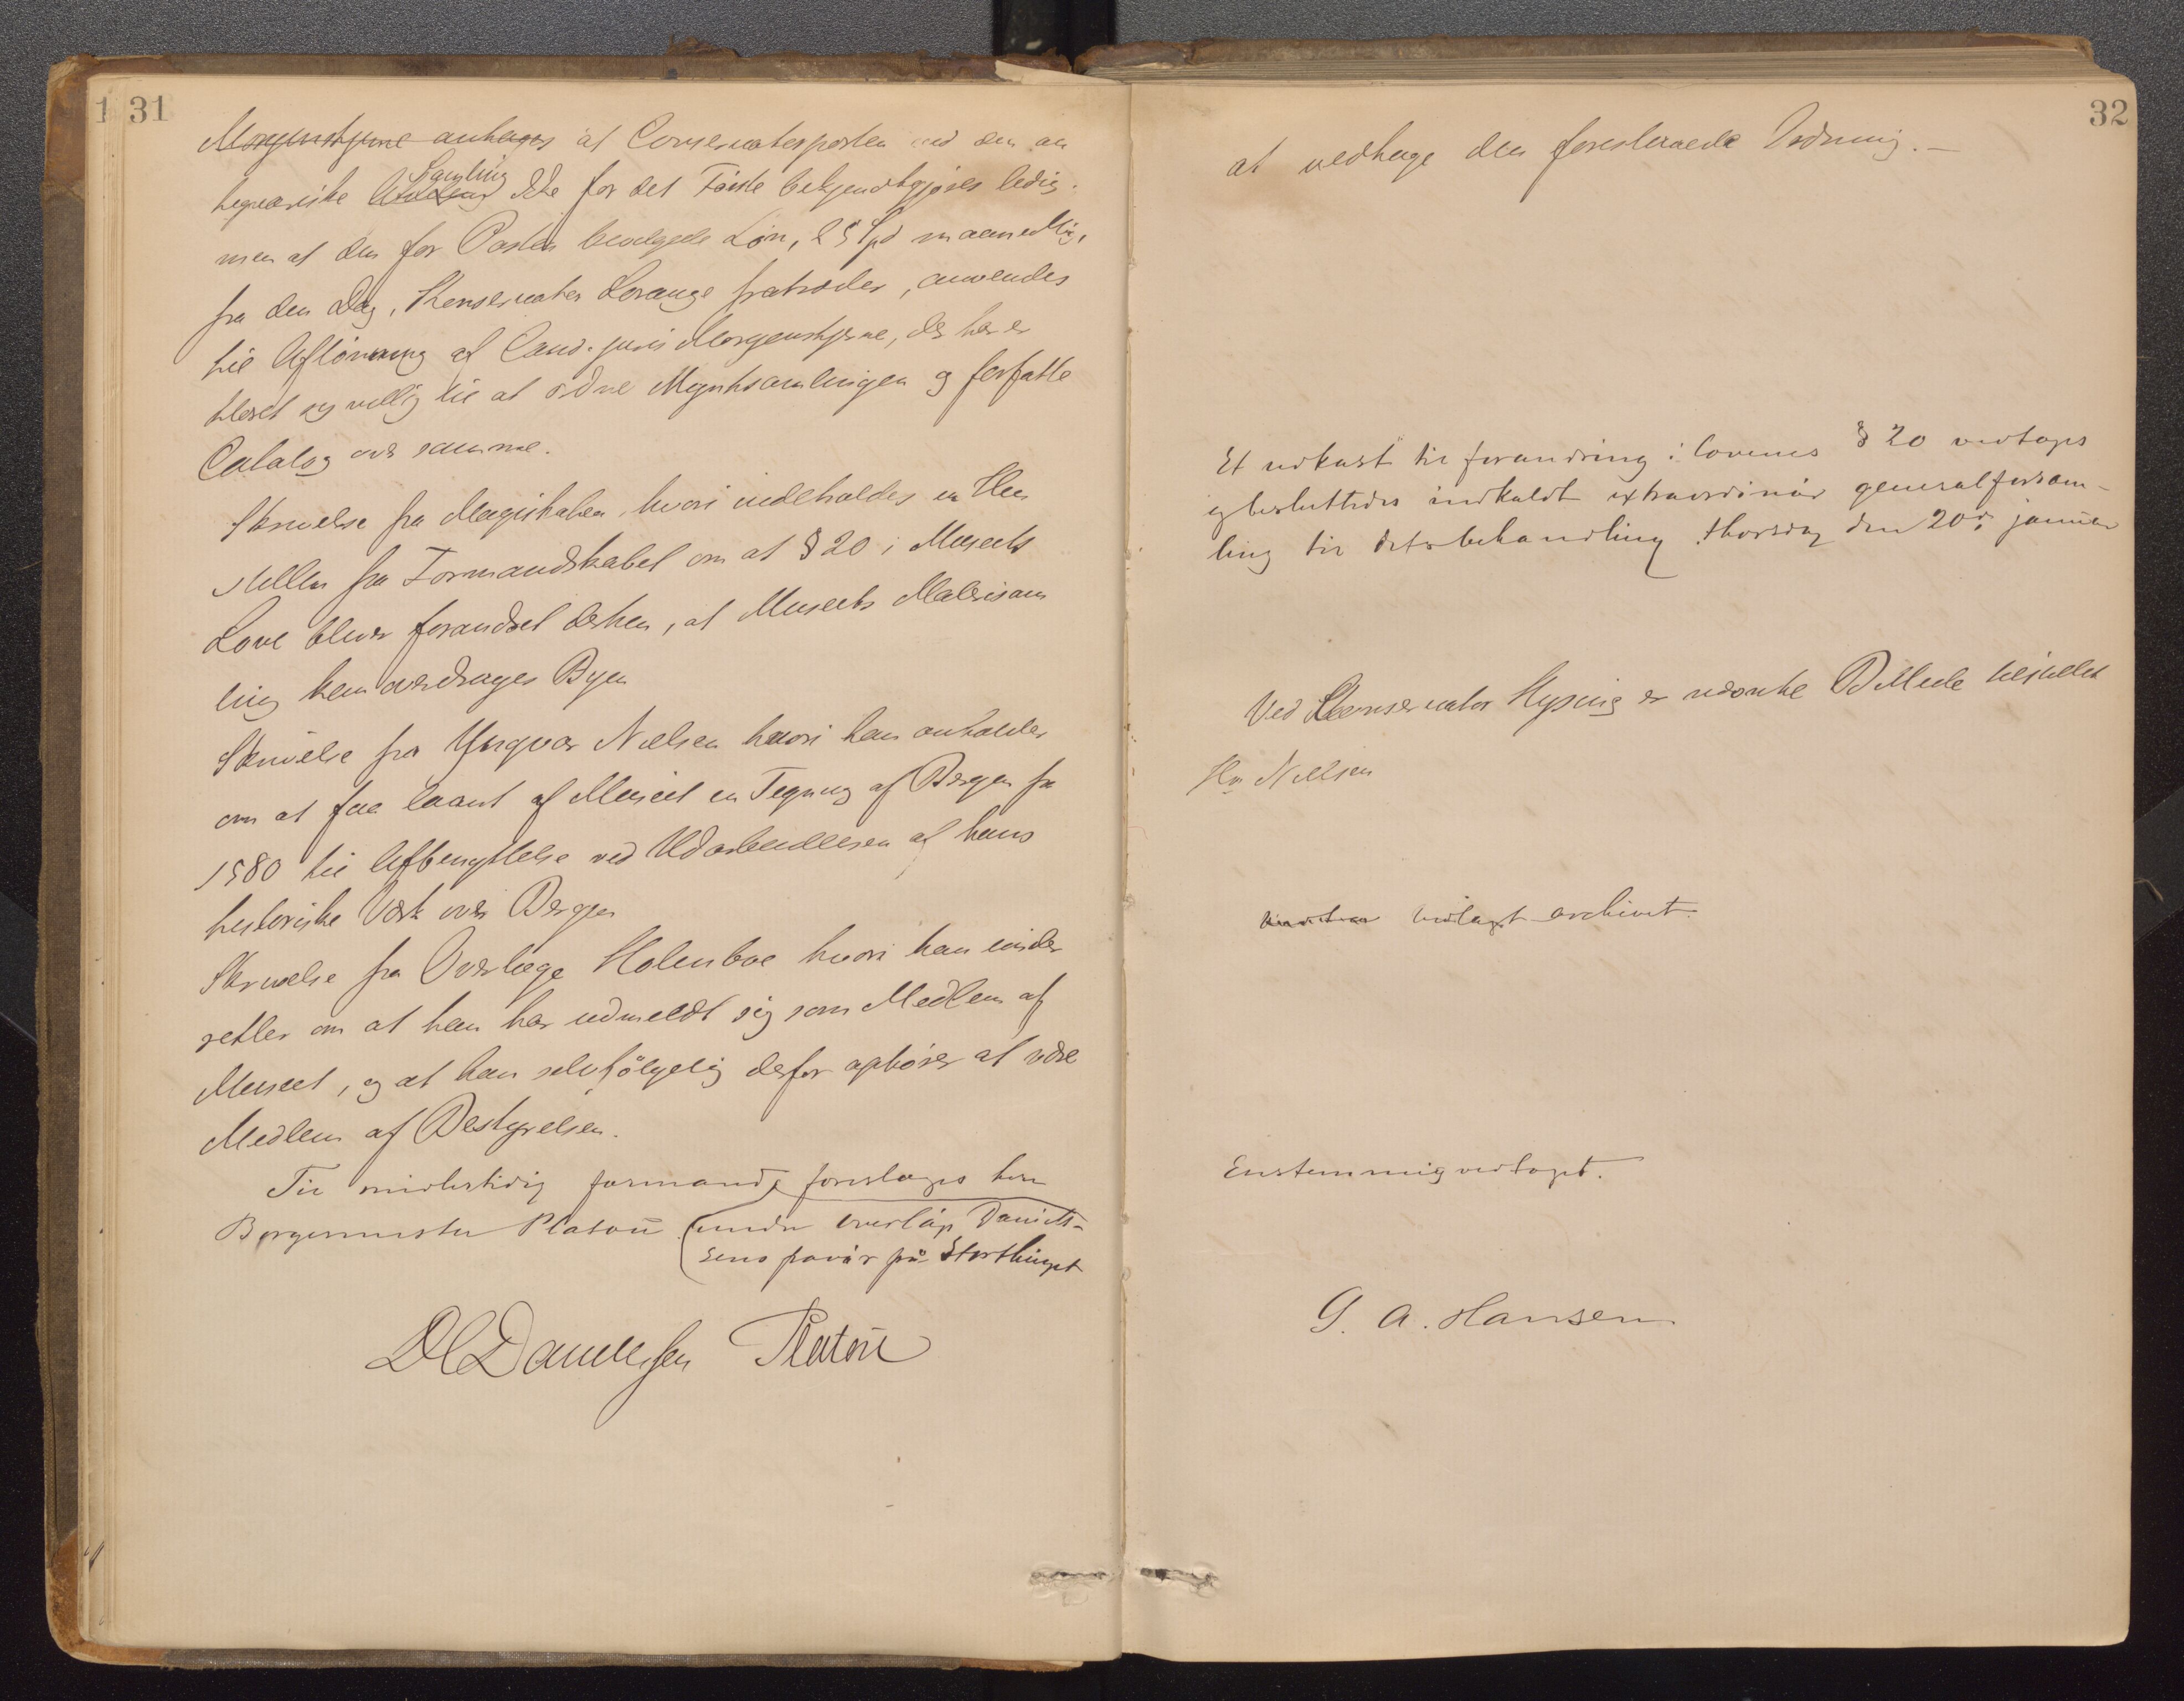 1 31
Morgenstjerne antages at Conservatorposten ved den an
Samling
teqvariske ikke for det Første bekjendtgjøres ledig.
men at den for Posten bevilgede Løn, 25 Spd maanedlig,
fra den Dag, Konservator Lorange fratræder, anvendes
til Aflønning af Cand. juris Morgenstjerne, der har er
klæret sig villig til at ordne Myntsamlingen og forfatte
Catalog over samme.
Skrivelse fra Magistraten, hvori indeholdes en Hen
stillen fra Formandskabet om at § 20 i Museets
Love bliver forandret derhen, at Museets Malerisam
ling kan overdrages Byen
Skrivelse fra Yngvar Nielsen hvori han anholder
om at faa laant af Museet en Tegning af Bergen fra
1580 til Afbenyttelse ved Udarbeidelsen af hans
historiske Værk over Bergen
Skrivelse fra Overlæge Holmboe hvori han under
retter om at han har udmeldt sig som Medlem af
Museet, og at han selvfølgelig derfor ophører at være
Medlem af Bestyrelsen.
Til midlertidig formand foreslages herr
Borgermester Platou (under overlæge Daniels-
sens fravær på Storthinget
DCDanielssen Platou
32
at vedtage den foreslaaede Ordning.-
Et udkast til forandring i lovenes § 20 vedtoges
og besluttedes indkaldt extraordinær generalforsam-
ling til dets behandling thorsdag den 20de januar
Ved Conservator Hysing er udønske Billede tilstillet
Hr Nielsen
vedlagt archivet.
Enstemmig vedtaget.
G. A. Hansen